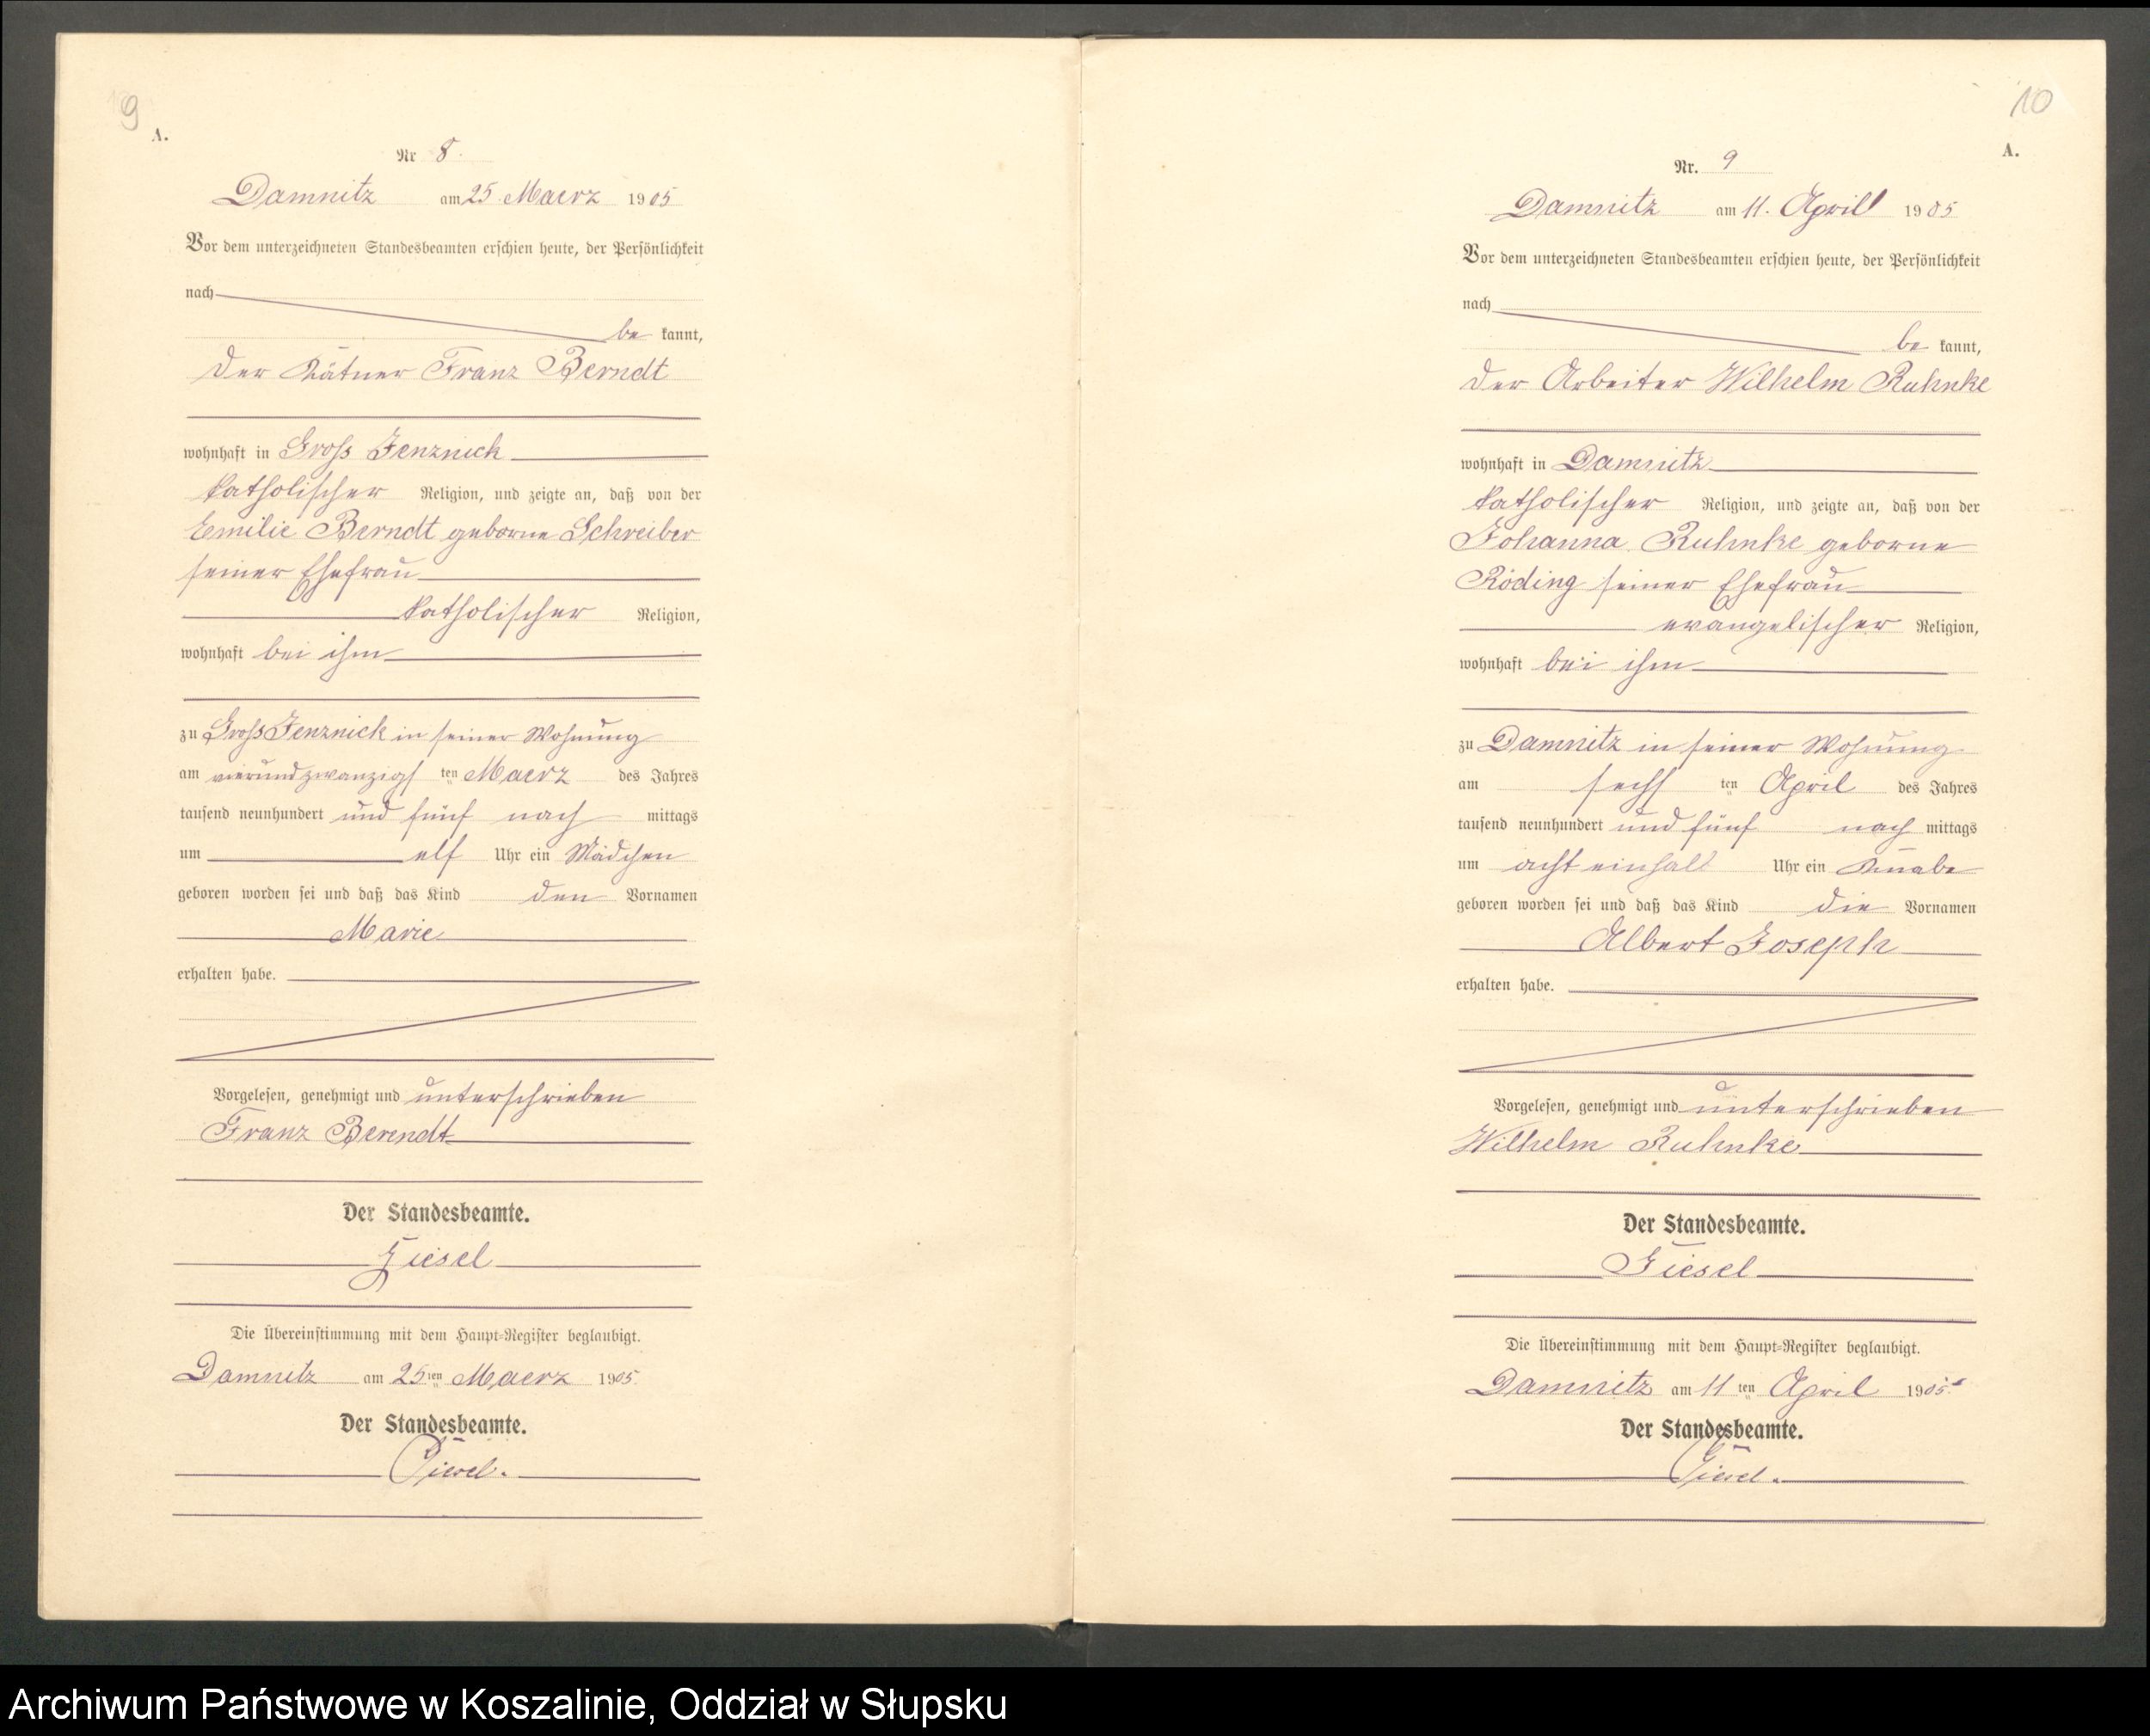 9
A.
Nr 8.
Damnitz am 25. Maerz 1905
Vor dem unterzeichneten Standesbeamten erschien heute, der Persönlichkeit
nach
be kannt,
der Kätner Franz Berndt
wohnhaft in Gross Jenznick
katholischer Religion, und zeigte an, daß von der
Emilie Berndt geborne Schreiber
seiner Ehefrau
katholischer Religion,
wohnhaft bei ihm
zu Gross Jenznick in seiner Wohnung
am vierundzwanzigs ten Maerz des Jahres
tausend neunhundert und fünf nach mittags
um elf Uhr ein Mädchen
geboren worden sei und daß das Kind den Vornamen
Marie
erhalten habe.
Vorgelesen, genehmigt und unterschrieben
Franz Berendt
Der Standesbeamte.
Giesel
Die Übereinstimmung mit dem Haupt-Register beglaubigt.
Damnitz am 25ten Maerz 1905.
Der Standesbeamte.
Giesel.
10
A.
Nr. 9
Damnitz am 11. April 1905
Vor dem unterzeichneten Standesbeamten erschien heute, der Persönlichkeit
nach
be kannt,
der Arbeiter Wilhelm Ruhnke
wohnhaft in Damnitz
katholischer Religion, und zeigte an, daß von der
Johanna Ruhnke geborne
Röding seiner Ehefrau
evangelischer Religion,
wohnhaft bei ihm
zu Damnitz in seiner Wohnung
am sechs ten April des Jahres
tausend neunhundert und fünf nach mittags
um acht einhalb Uhr ein Knabe
geboren worden sei und daß das Kind die Vornamen
Albert Joseph
erhalten habe.
Vorgelesen, genehmigt und unterschrieben
Wilhelm Ruhnke
Der Standesbeamte.
Giesel
Die Übereinstimmung mit dem Haupt-Register beglaubigt.
Damnitz am 11 ten April 1905.
Der Standesbeamte.
Giesel.
Archiwum Państwowe w Koszalinie, Oddział w Słupsku